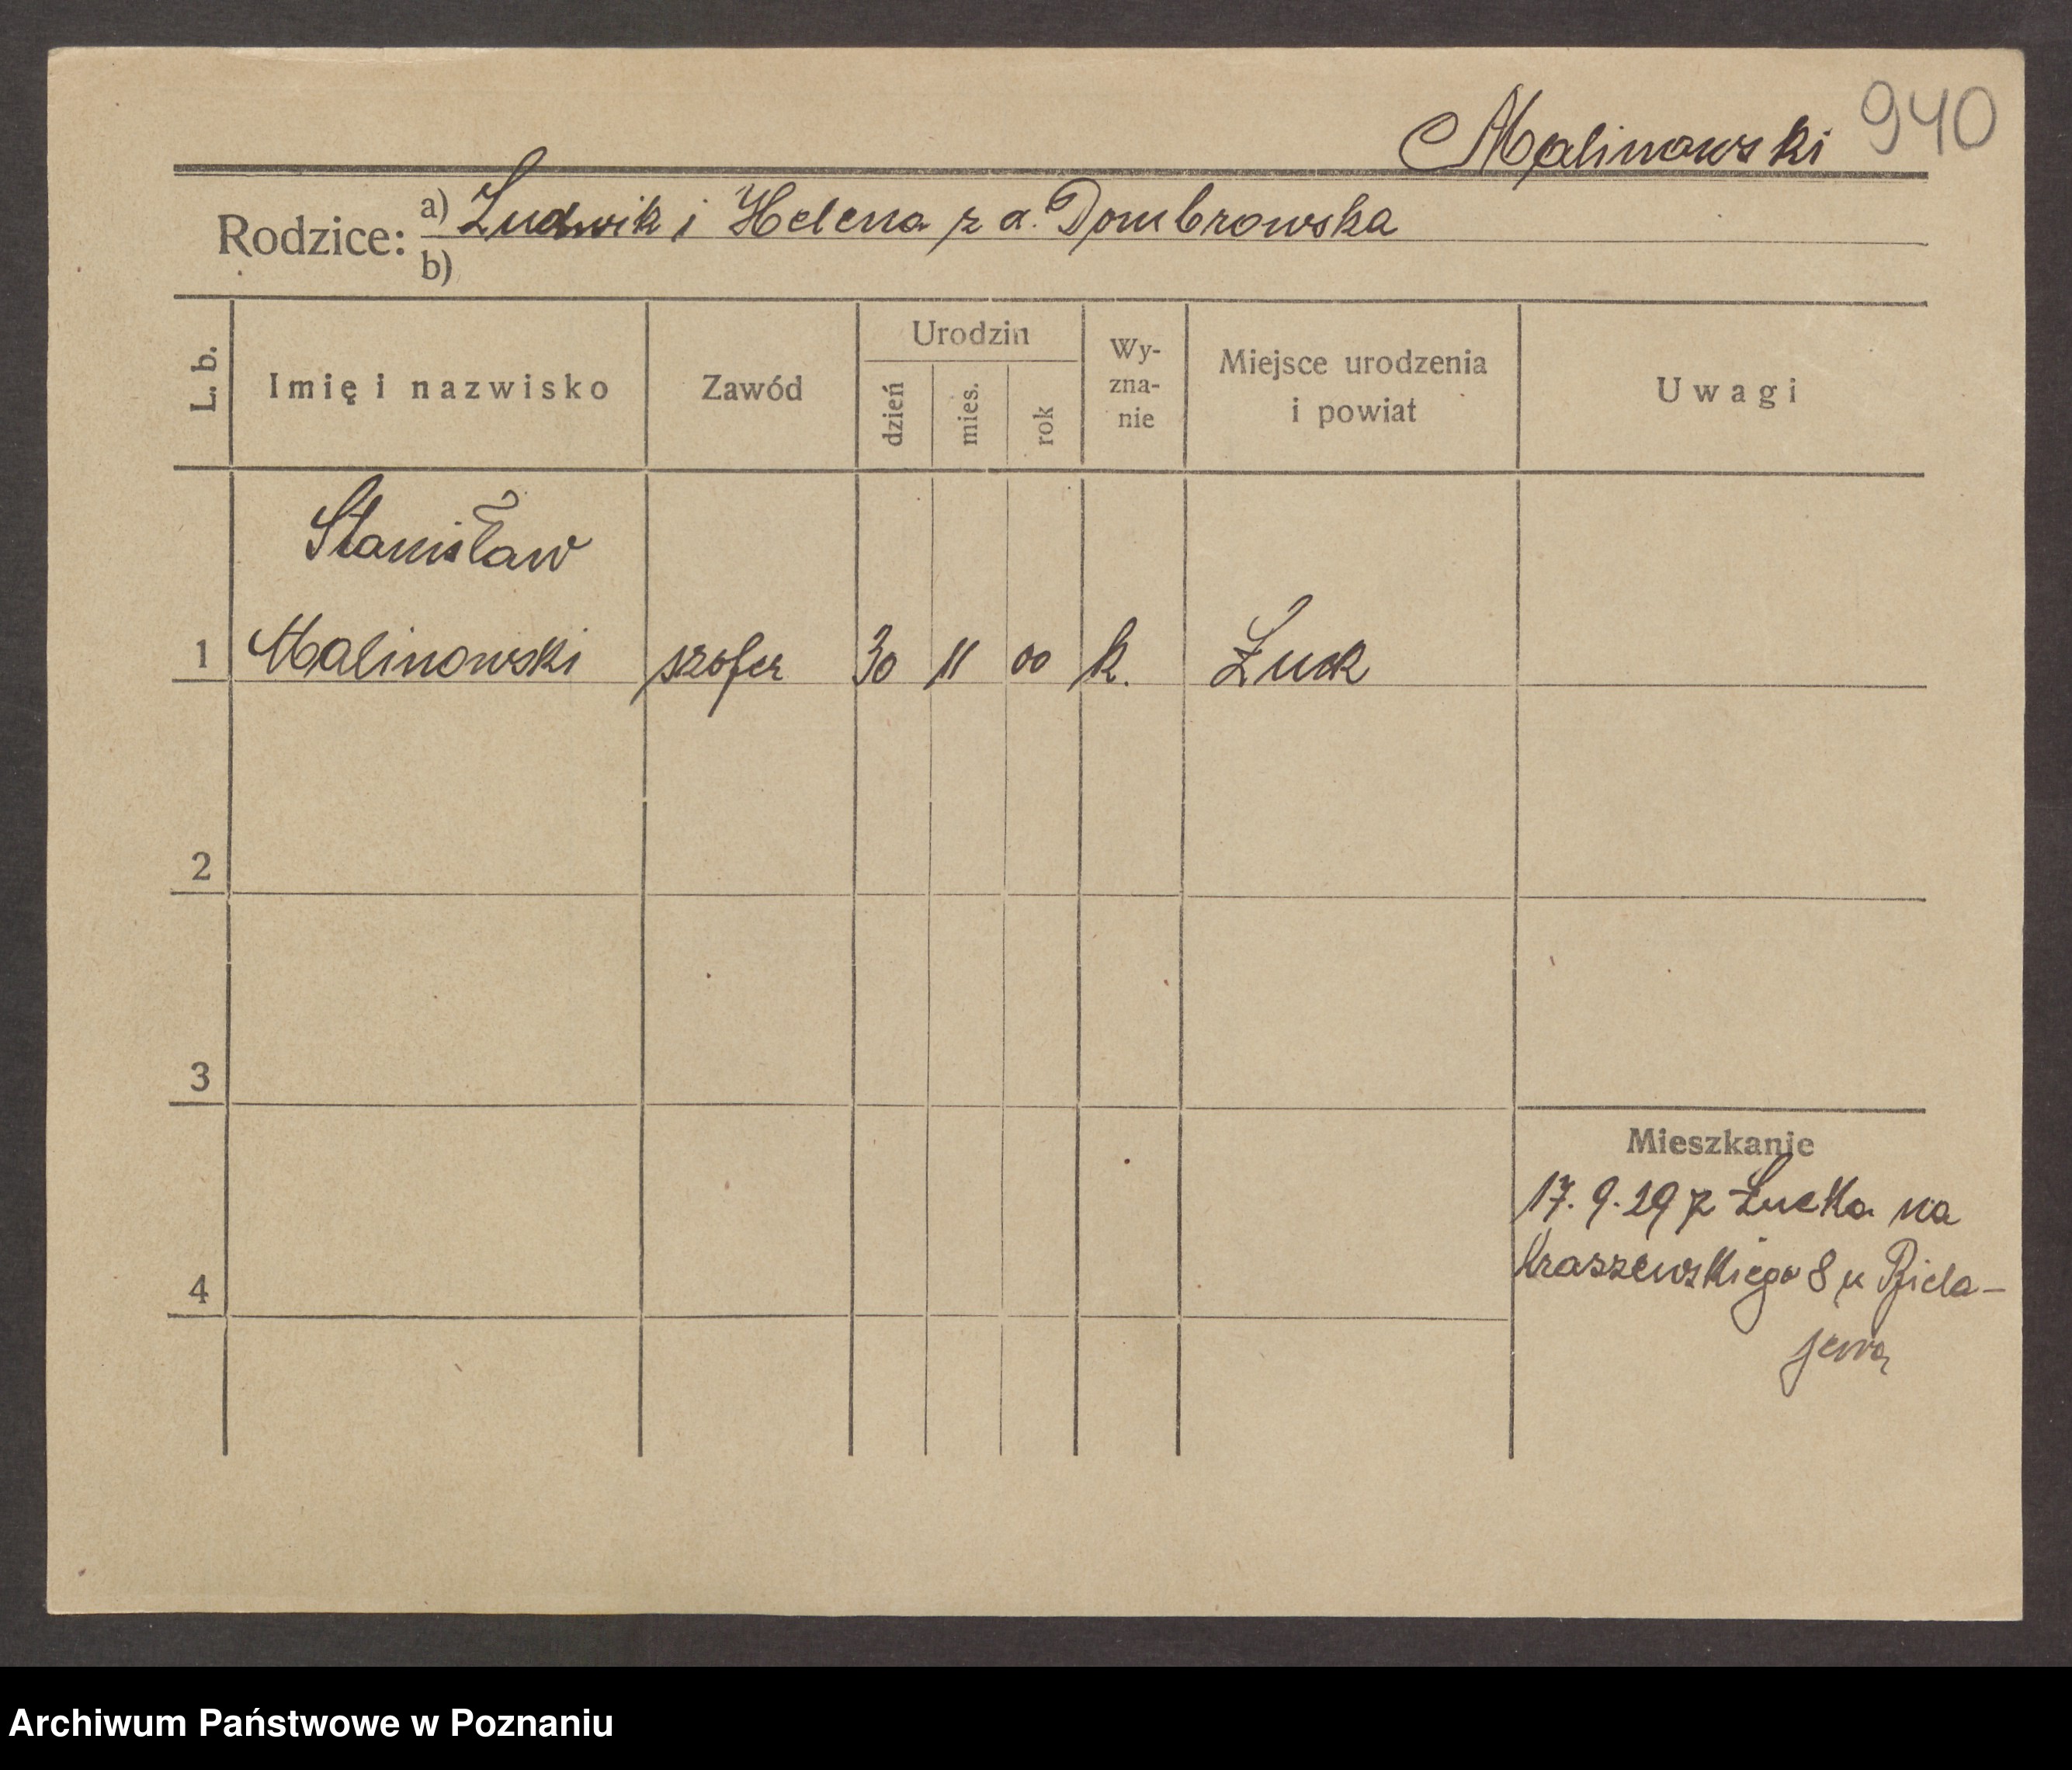 Malinowski 940
Rodzice: a) Ludwik i Helena z d. Dombrowska
b)
L. b. Imię i nazwisko Zawód Urodzin dzień mies. rok Wy-zna-nie Miejsce urodzenia i powiat Uwagi
Stanisław
1 Malinowski szofer 30 11 00 k. Łuck
2
3
Mieszkanie
17. 9. 29 z Łucka na
Kraszewskiego 8 u
4
Archiwum Państwowe w Poznaniu